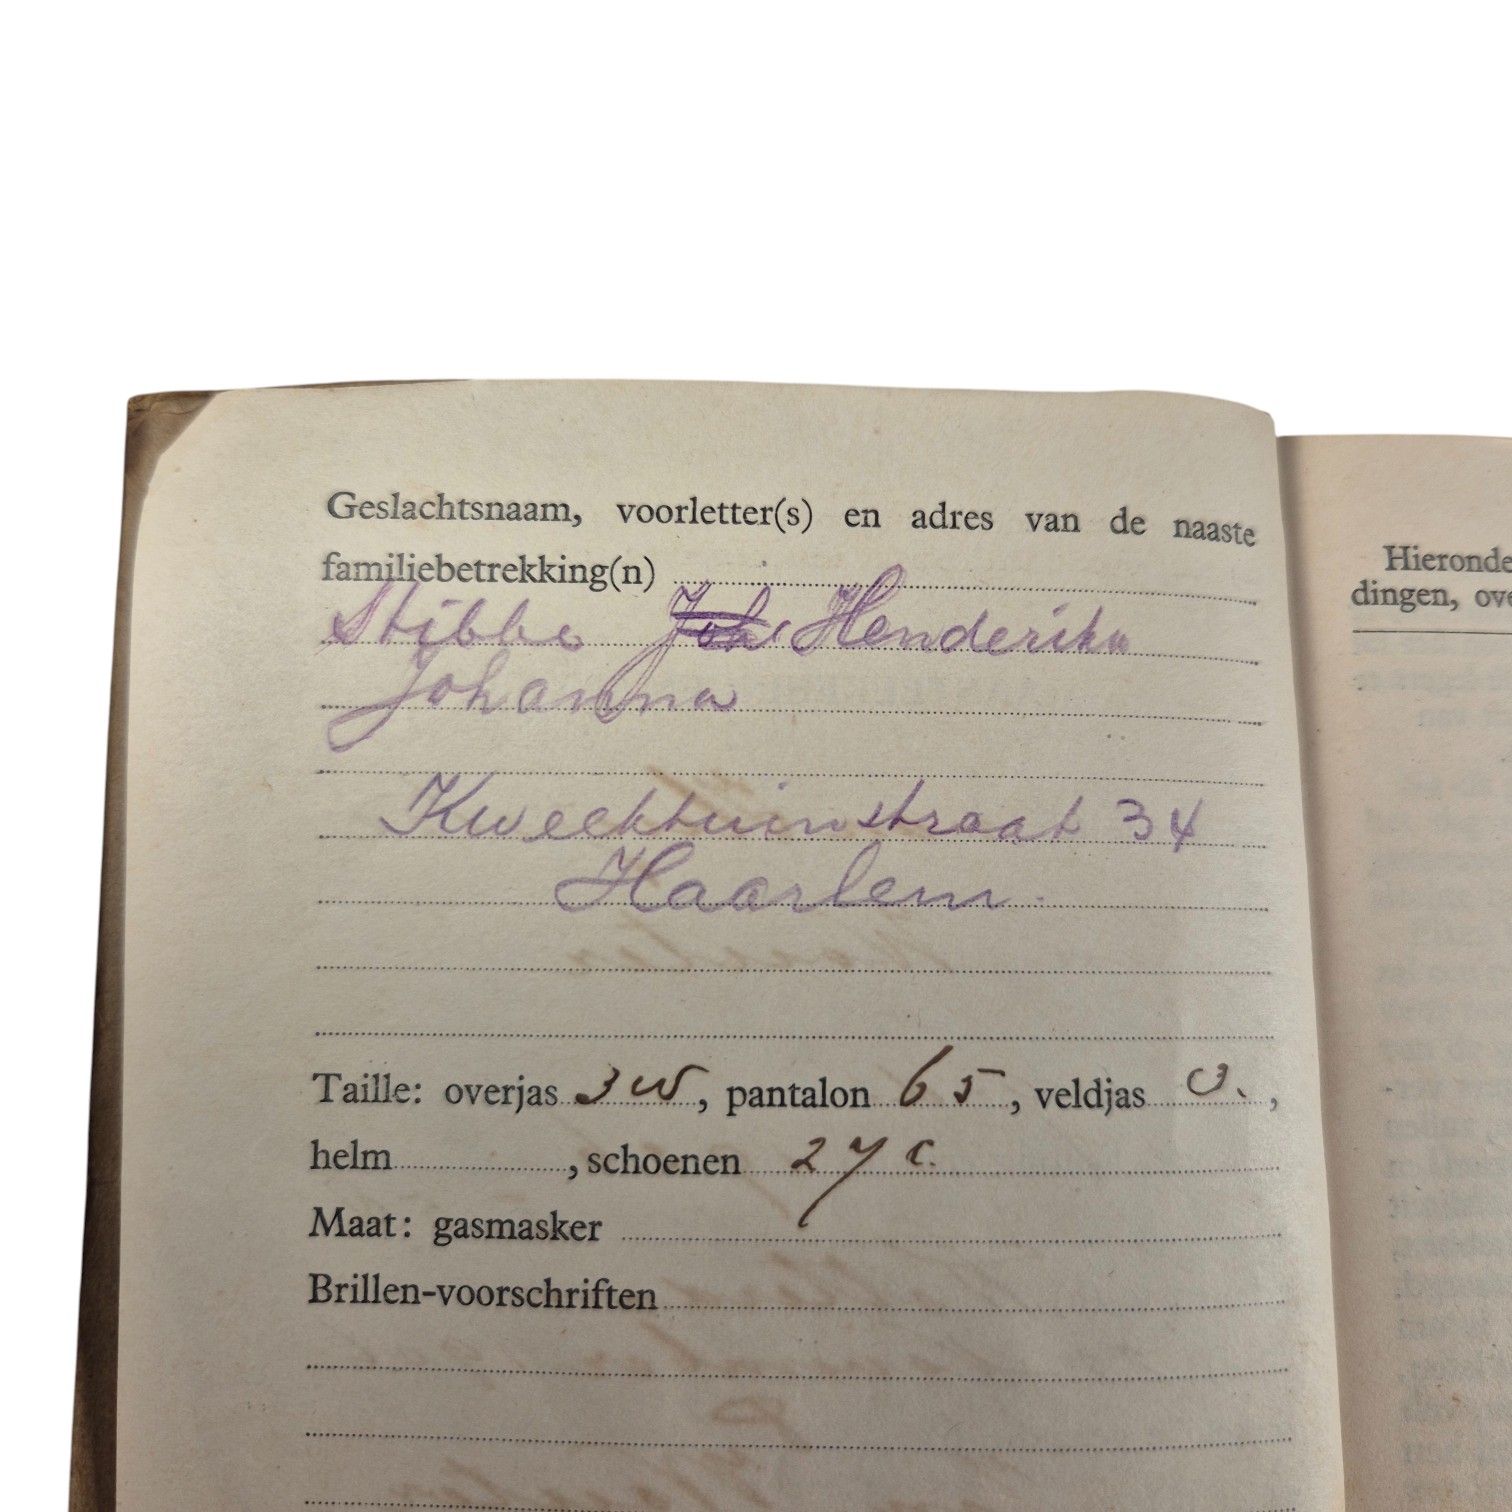 Geslachtsnaam, voorletter(s) en adres van de naaste
familiebetrekking(n)
Stibbe Joh Henderika
Johanna
Kweektuinstraat 34
Haarlem.
Taille: overjas 3 W, pantalon 65, veldjas 3.,
helm, schoenen 27 c.
Maat: gasmasker
Brillen-voorschriften
Hieronde
dingen, ove